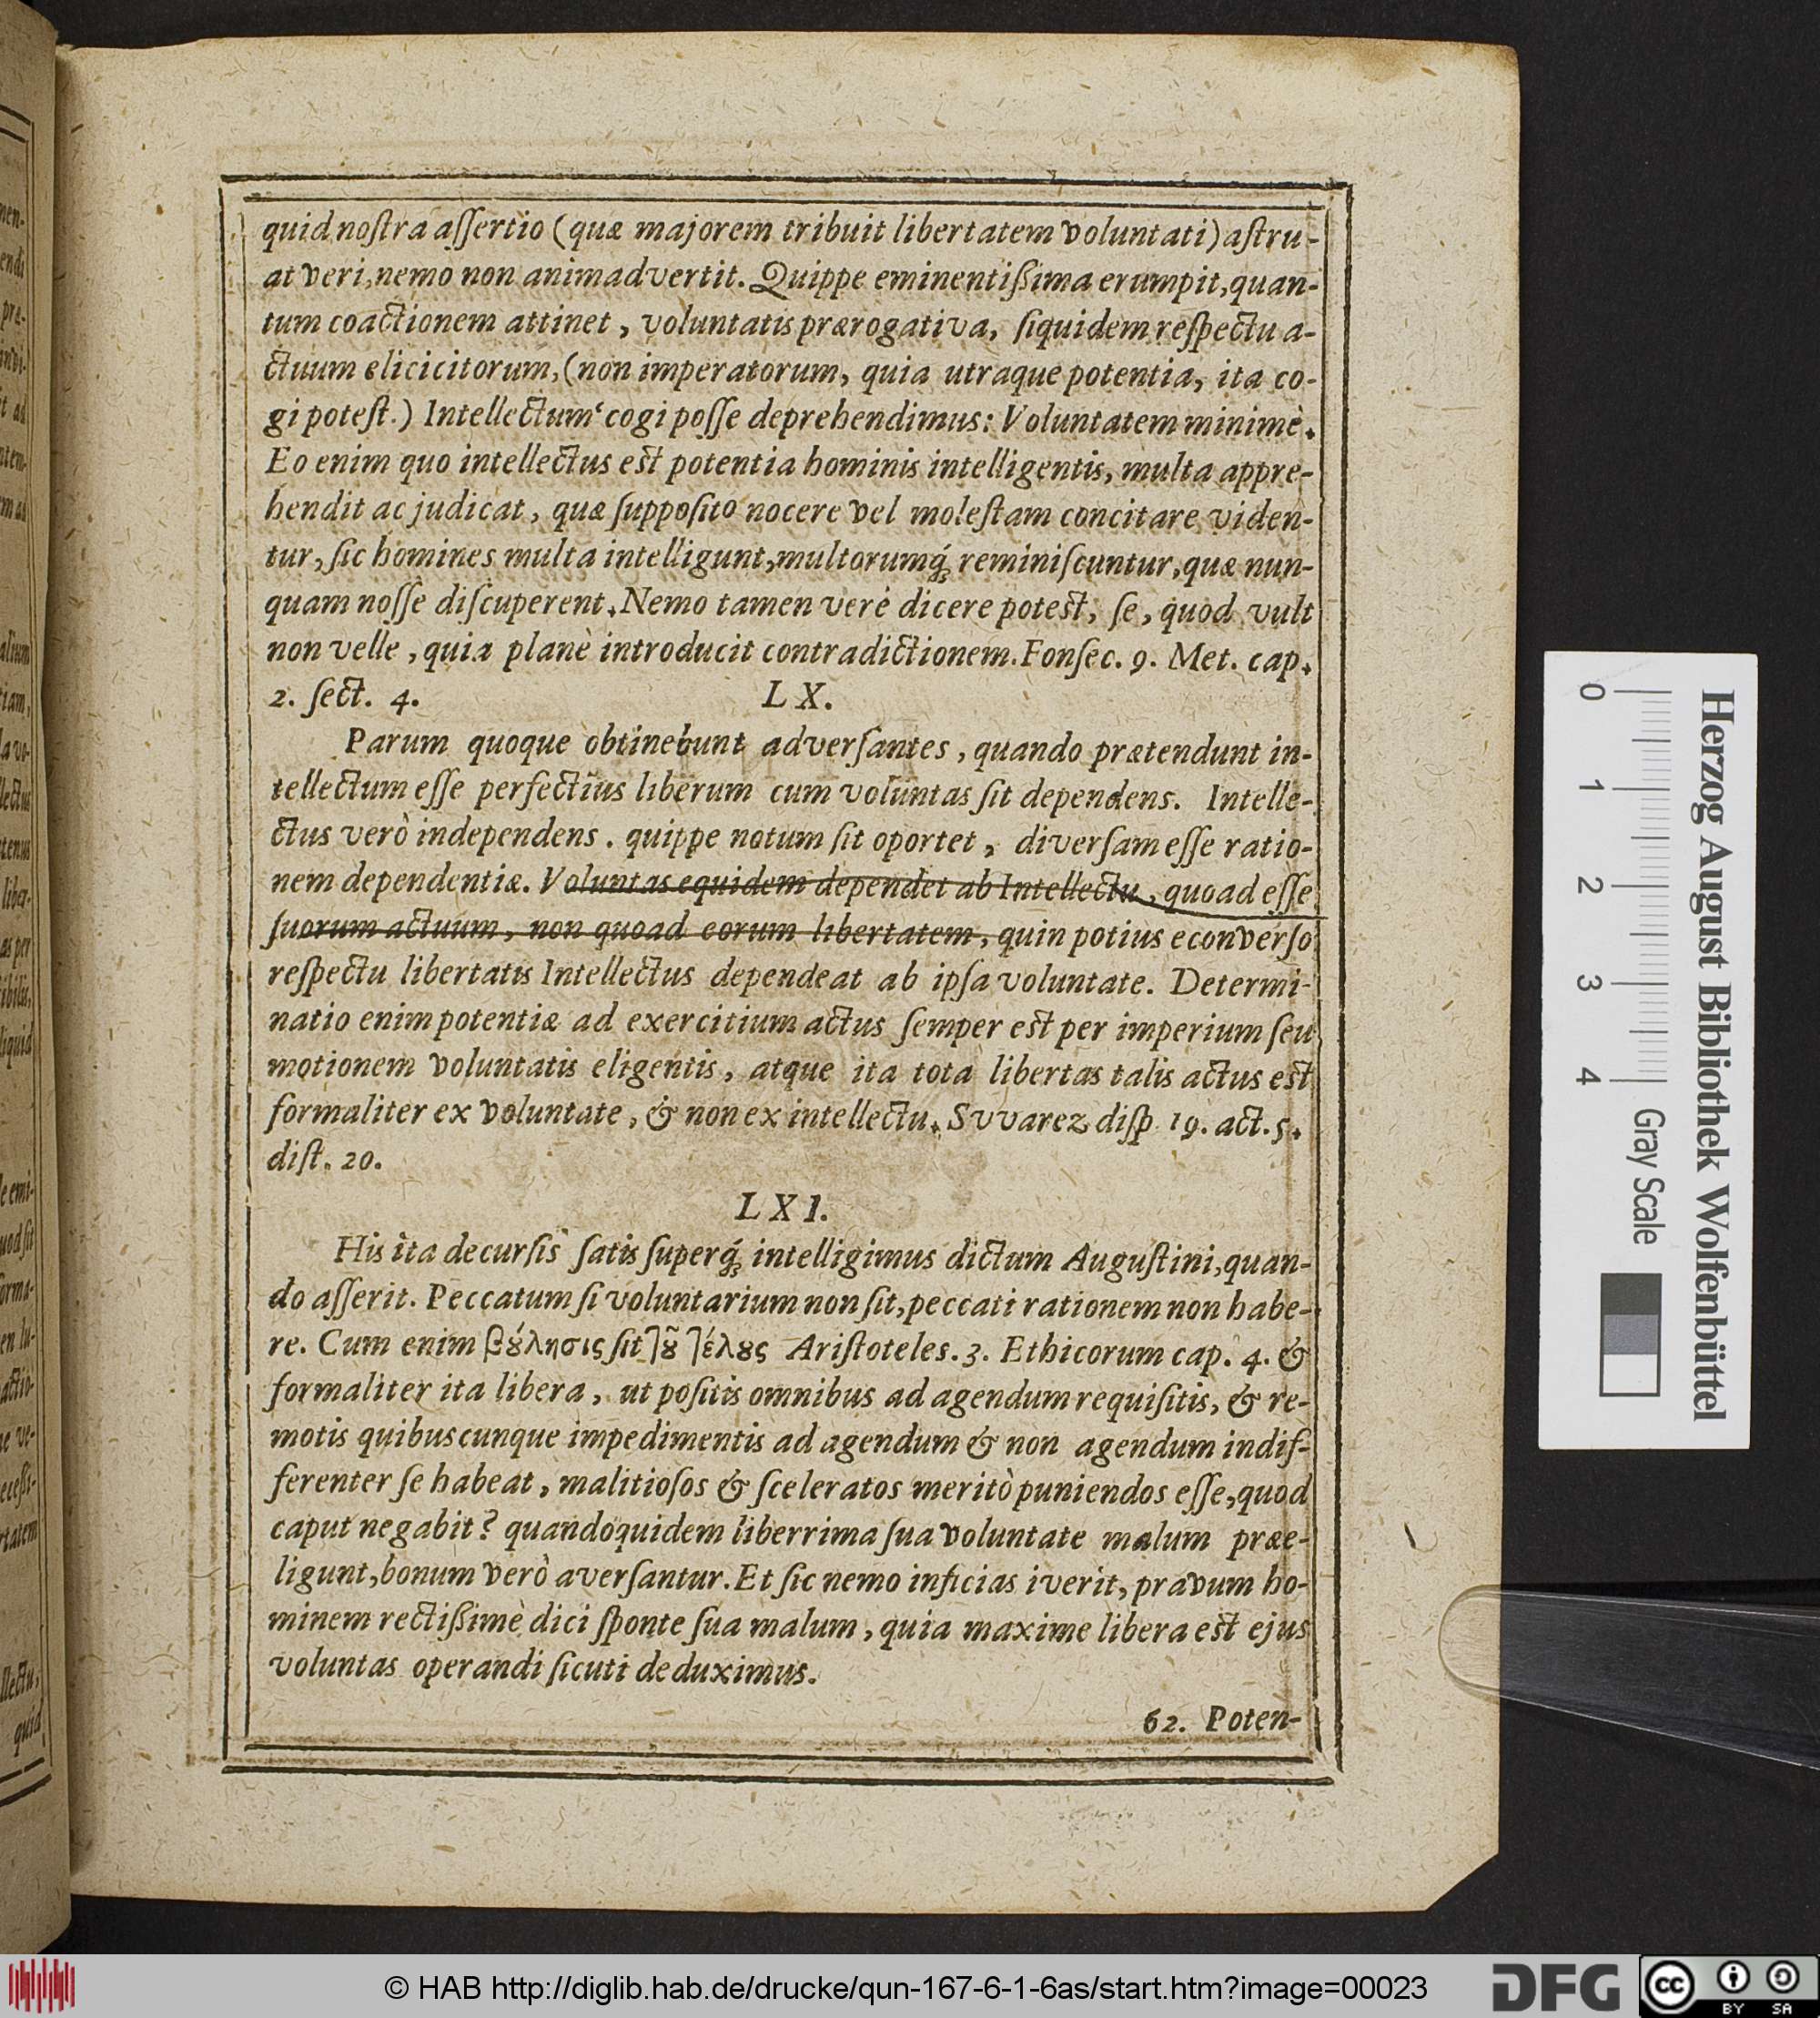 quid noſtra aſſertio (quæ majorem tribuit libertatem voluntati) aſtru-
at veri, nemo non animadvertit. Quippe eminentißima erumpit, quan-
tum coactionem attinet, voluntatis prærogativa, ſiquidem reſpectu a-
ctuum elicicitorum, (non imperatorum, quia utraque potentia, ita co-
gi poteſt.) Intellectum cogi poſſe deprehendimus: Voluntatem minimè.
Eo enim quo intellectus eſt potentia hominis intelligentis, multa appre-
hendit ac judicat, quæ ſuppoſito nocere vel moleſtam concitare viden-
tur, ſic homines multa intelligunt, multorumq́; reminiſcuntur, quæ nun-
quam noſſe diſcuperent. Nemo tamen verè dicere poteſt, ſe, quod vult
non velle, quia planè introducit contradictionem. Fonſec. 9. Met. cap.
2. ſect. 4.
LX.
Parum quoque obtinebunt adverſantes, quando prætendunt in-
tellectum eſſe perfectius liberum cum voluntas ſit dependens. Intelle-
ctus verò independens. quippe notum ſit oportet, diverſam eſſe ratio-
nem dependentiæ. Voluntas equidem dependet ab Intellectu, quoad eſſe
ſuorum actuum, non quoad eorum libertatem, quin potius econverſo
reſpectu libertatis Intellectus dependeat ab ipſa voluntate. Determi-
natio enim potentiæ ad exercitium actus ſemper eſt per imperium ſeu
motionem voluntatis eligentis, atque ita tota libertas talis actus eſt
formaliter ex voluntate, & non ex intellectu. Svvarez diſp. 19. act. 5.
diſt. 20.
LXI.
His ita decurſis ſatis ſuperq́; intelligimus dictum Auguſtini, quan-
do aſſerit. Peccatum ſi voluntarium non ſit, peccati rationem non habe-
re. Cum enim βȣ́λησις ſit τȣ̃ τέλȣς Ariſtoteles. 3. Ethicorum cap. 4. &
formaliter ita libera, ut poſitis omnibus ad agendum requiſitis, & re-
motis quibuscunque impedimentis ad agendum & non agendum indif-
ferenter ſe habeat, malitioſos & ſceleratos meritò puniendos eſſe, quod
caput negabit? quandoquidem liberrima ſua voluntate malum præe-
ligunt, bonum verò averſantur. Et ſic nemo inficias iverit, pravum ho-
minem rectißimè dici ſponte ſua malum, quia maxime libera eſt ejus
voluntas operandi ſicuti deduximus.
62. Poten-
Herzog August Bibliothek Wolfenbüttel
0 1 2 3 4 Gray Scale
© HAB http://diglib.hab.de/drucke/qun-167-6-1-6as/start.htm?image=00023
DFG
cc BY SA